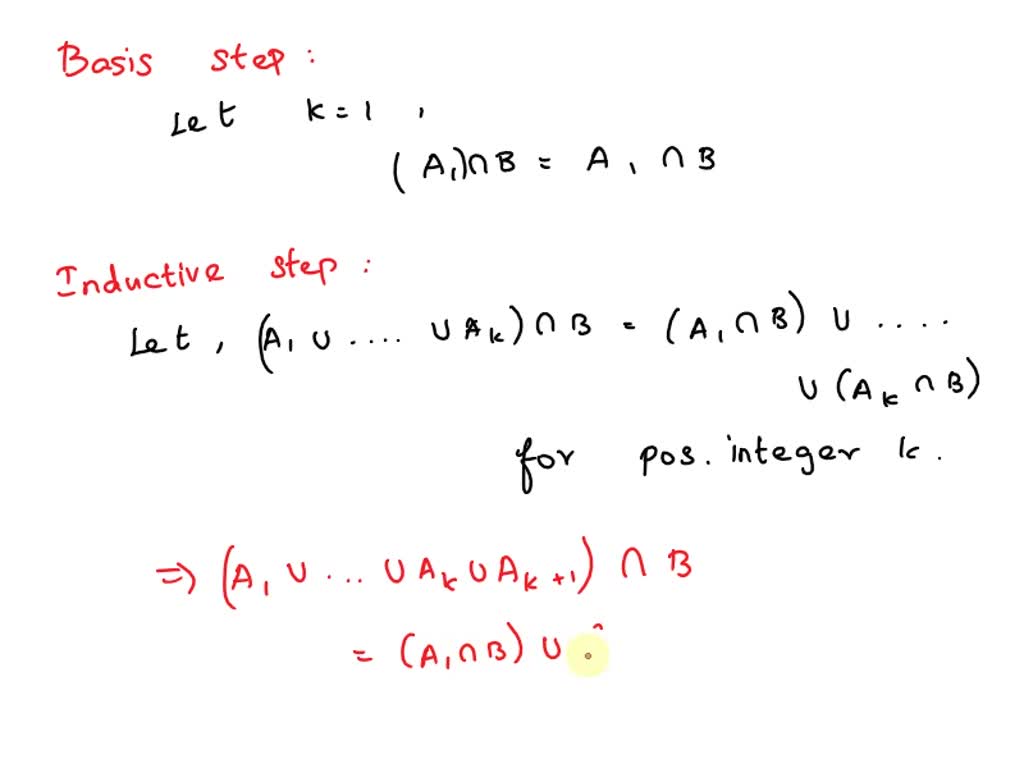 Basis step :
Let k = 1 ,
(A₁)∩B = A₁ ∩ B
Inductive step :
Let , (A₁ ∪ .... ∪ Aₖ) ∩ B = (A₁ ∩ B) ∪ ....
∪ (Aₖ ∩ B)
for pos. integer k .
⇒ (A₁ ∪ ... ∪ Aₖ ∪ Aₖ₊₁) ∩ B
= (A₁ ∩ B) ∪